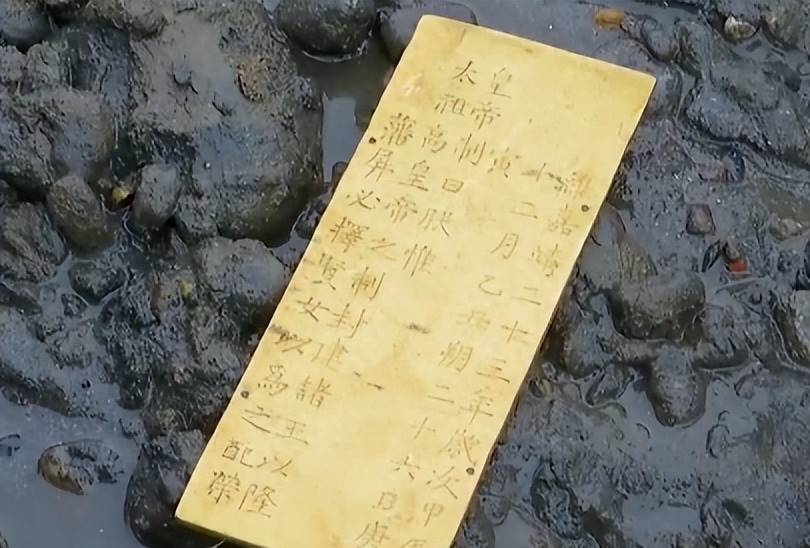 維嘉靖二十三年歲次甲辰
十二月乙丑朔二十六日庚
寅
皇帝制曰朕惟
太祖高皇帝之制封建諸王以隆
藩屏必擇賢女以為之配榮